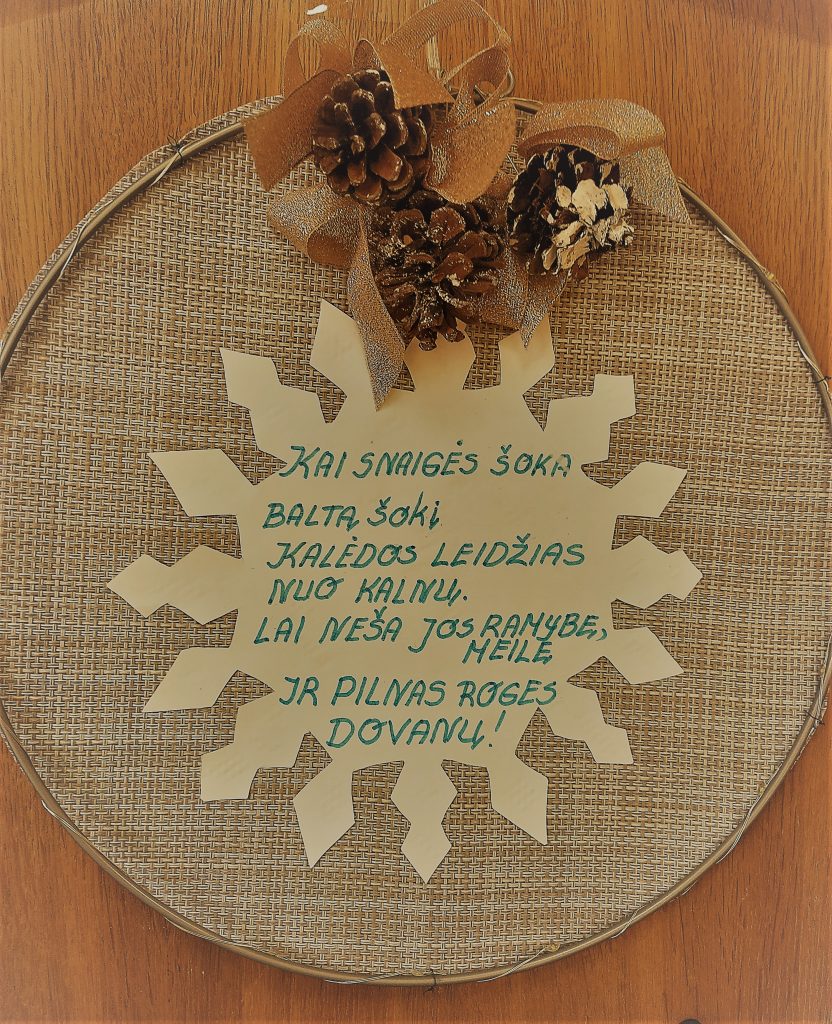 KAI SNAIGĖS ŠOKA
BALTĄ ŠOKĮ
KALĖDOS LEIDŽIAS
NUO KALNŲ.
LAI NEŠA JOS RAMYBĘ,
MEILĘ
IR PILNAS ROGES
DOVANŲ!